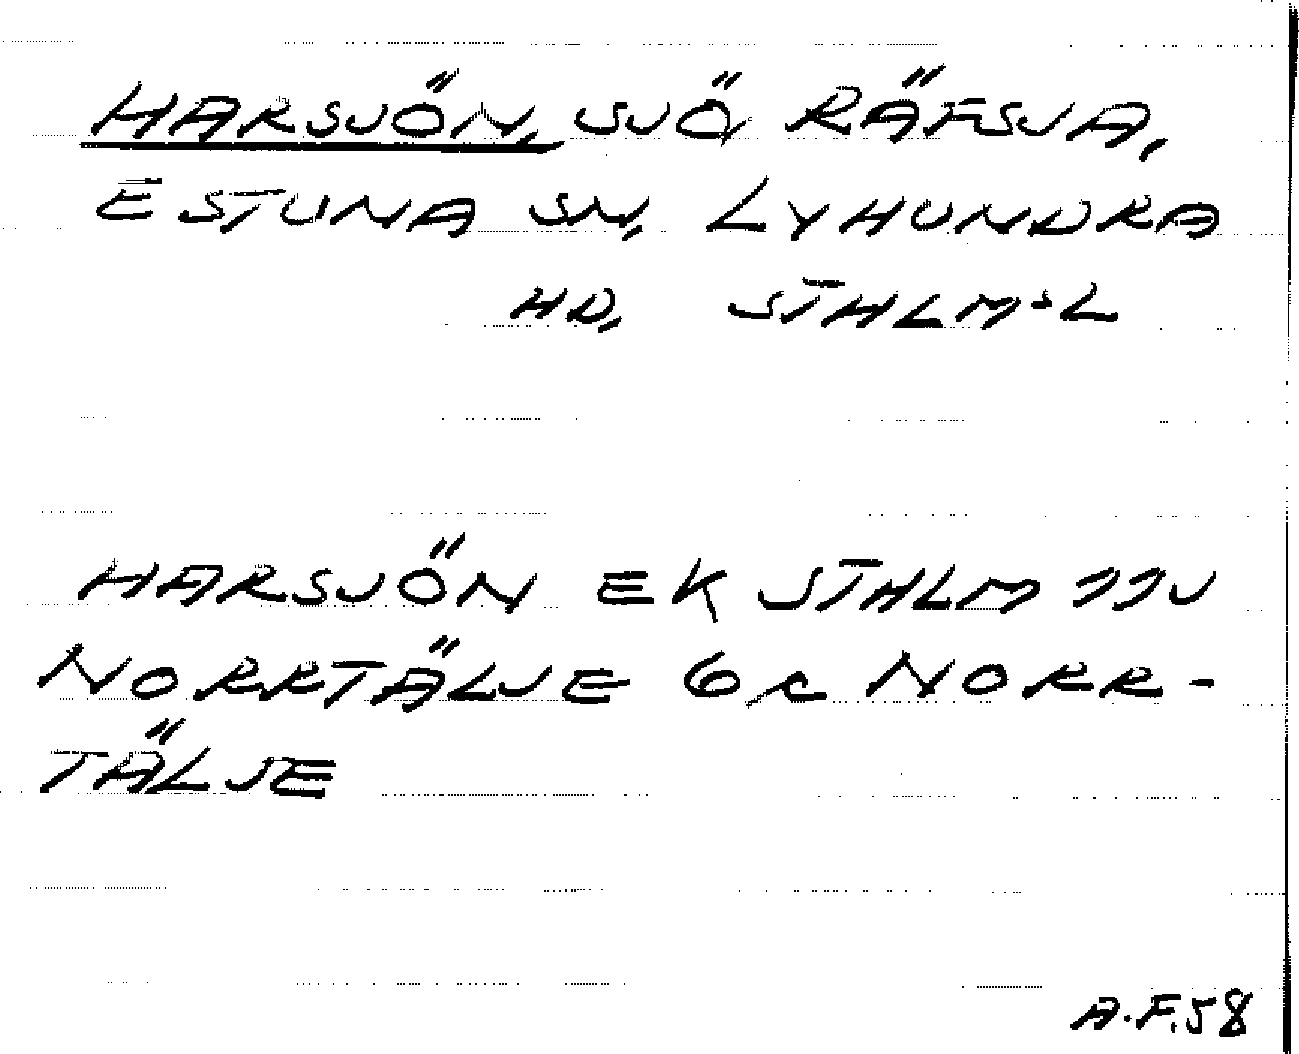 HARSJÖN, SJÖ RÄFSJA,
ESTUNA SN, LYHUNDRA
HD, STHLM-L
HARSJÖN EK STHLM 11J
NORRTÄLJE 6c NORR-
TÄLJE
A.F.58